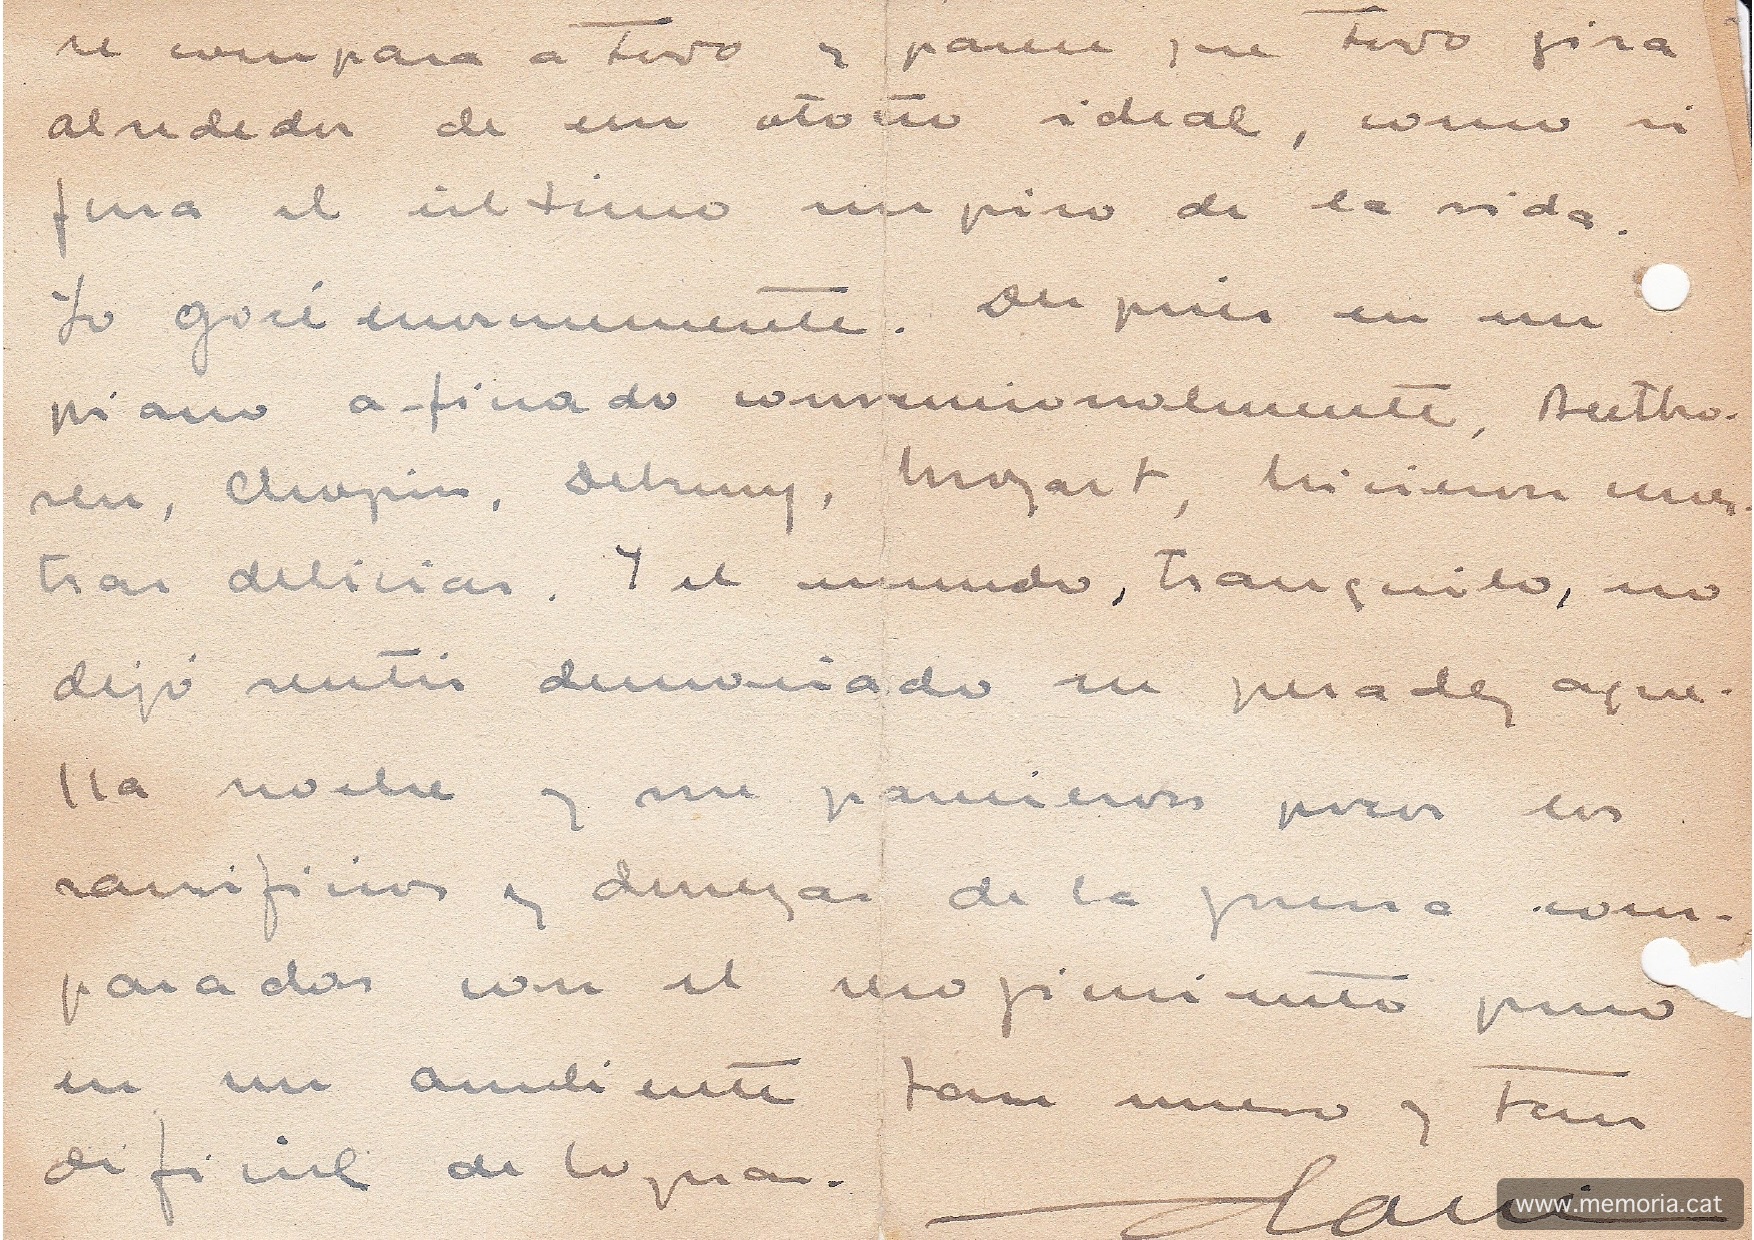 se compara a todo y parece que todo gira
alrededor de un otoño ideal, como si
fuera el último suspiro de la vida.
Yo gocé enormemente. Después en un
piano afinado convencionalmente, Beetho-
ven, Chopin, Debussy, Mozart, hicieron nues-
tras delicias. Y el mundo, tranquilo, no
dejó sentir demasiado su pesadez aque-
lla noche y me parecieron pocos los
sacrificios y durezas de la guerra com-
parados con el recogimiento puro
en un ambiente tan nuevo y tan
dificil de lograr.
www.memoria.cat